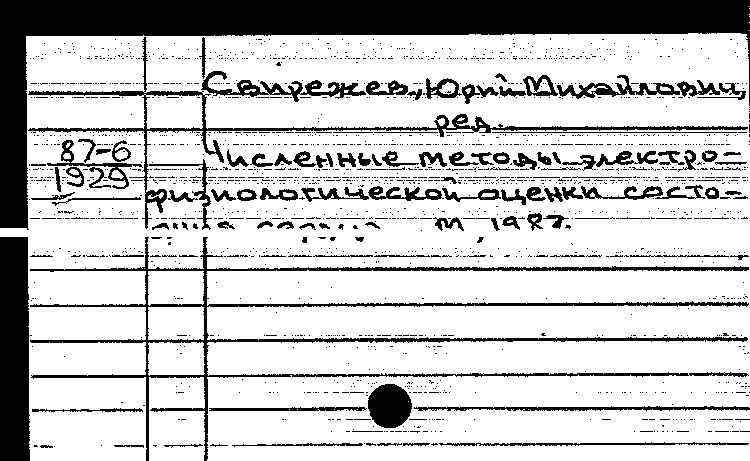 Свирежев, Юрий Михайлович,
ред.
87-6
1929
Численные методы электро-
физиологической оценки состо-
М, 1987.